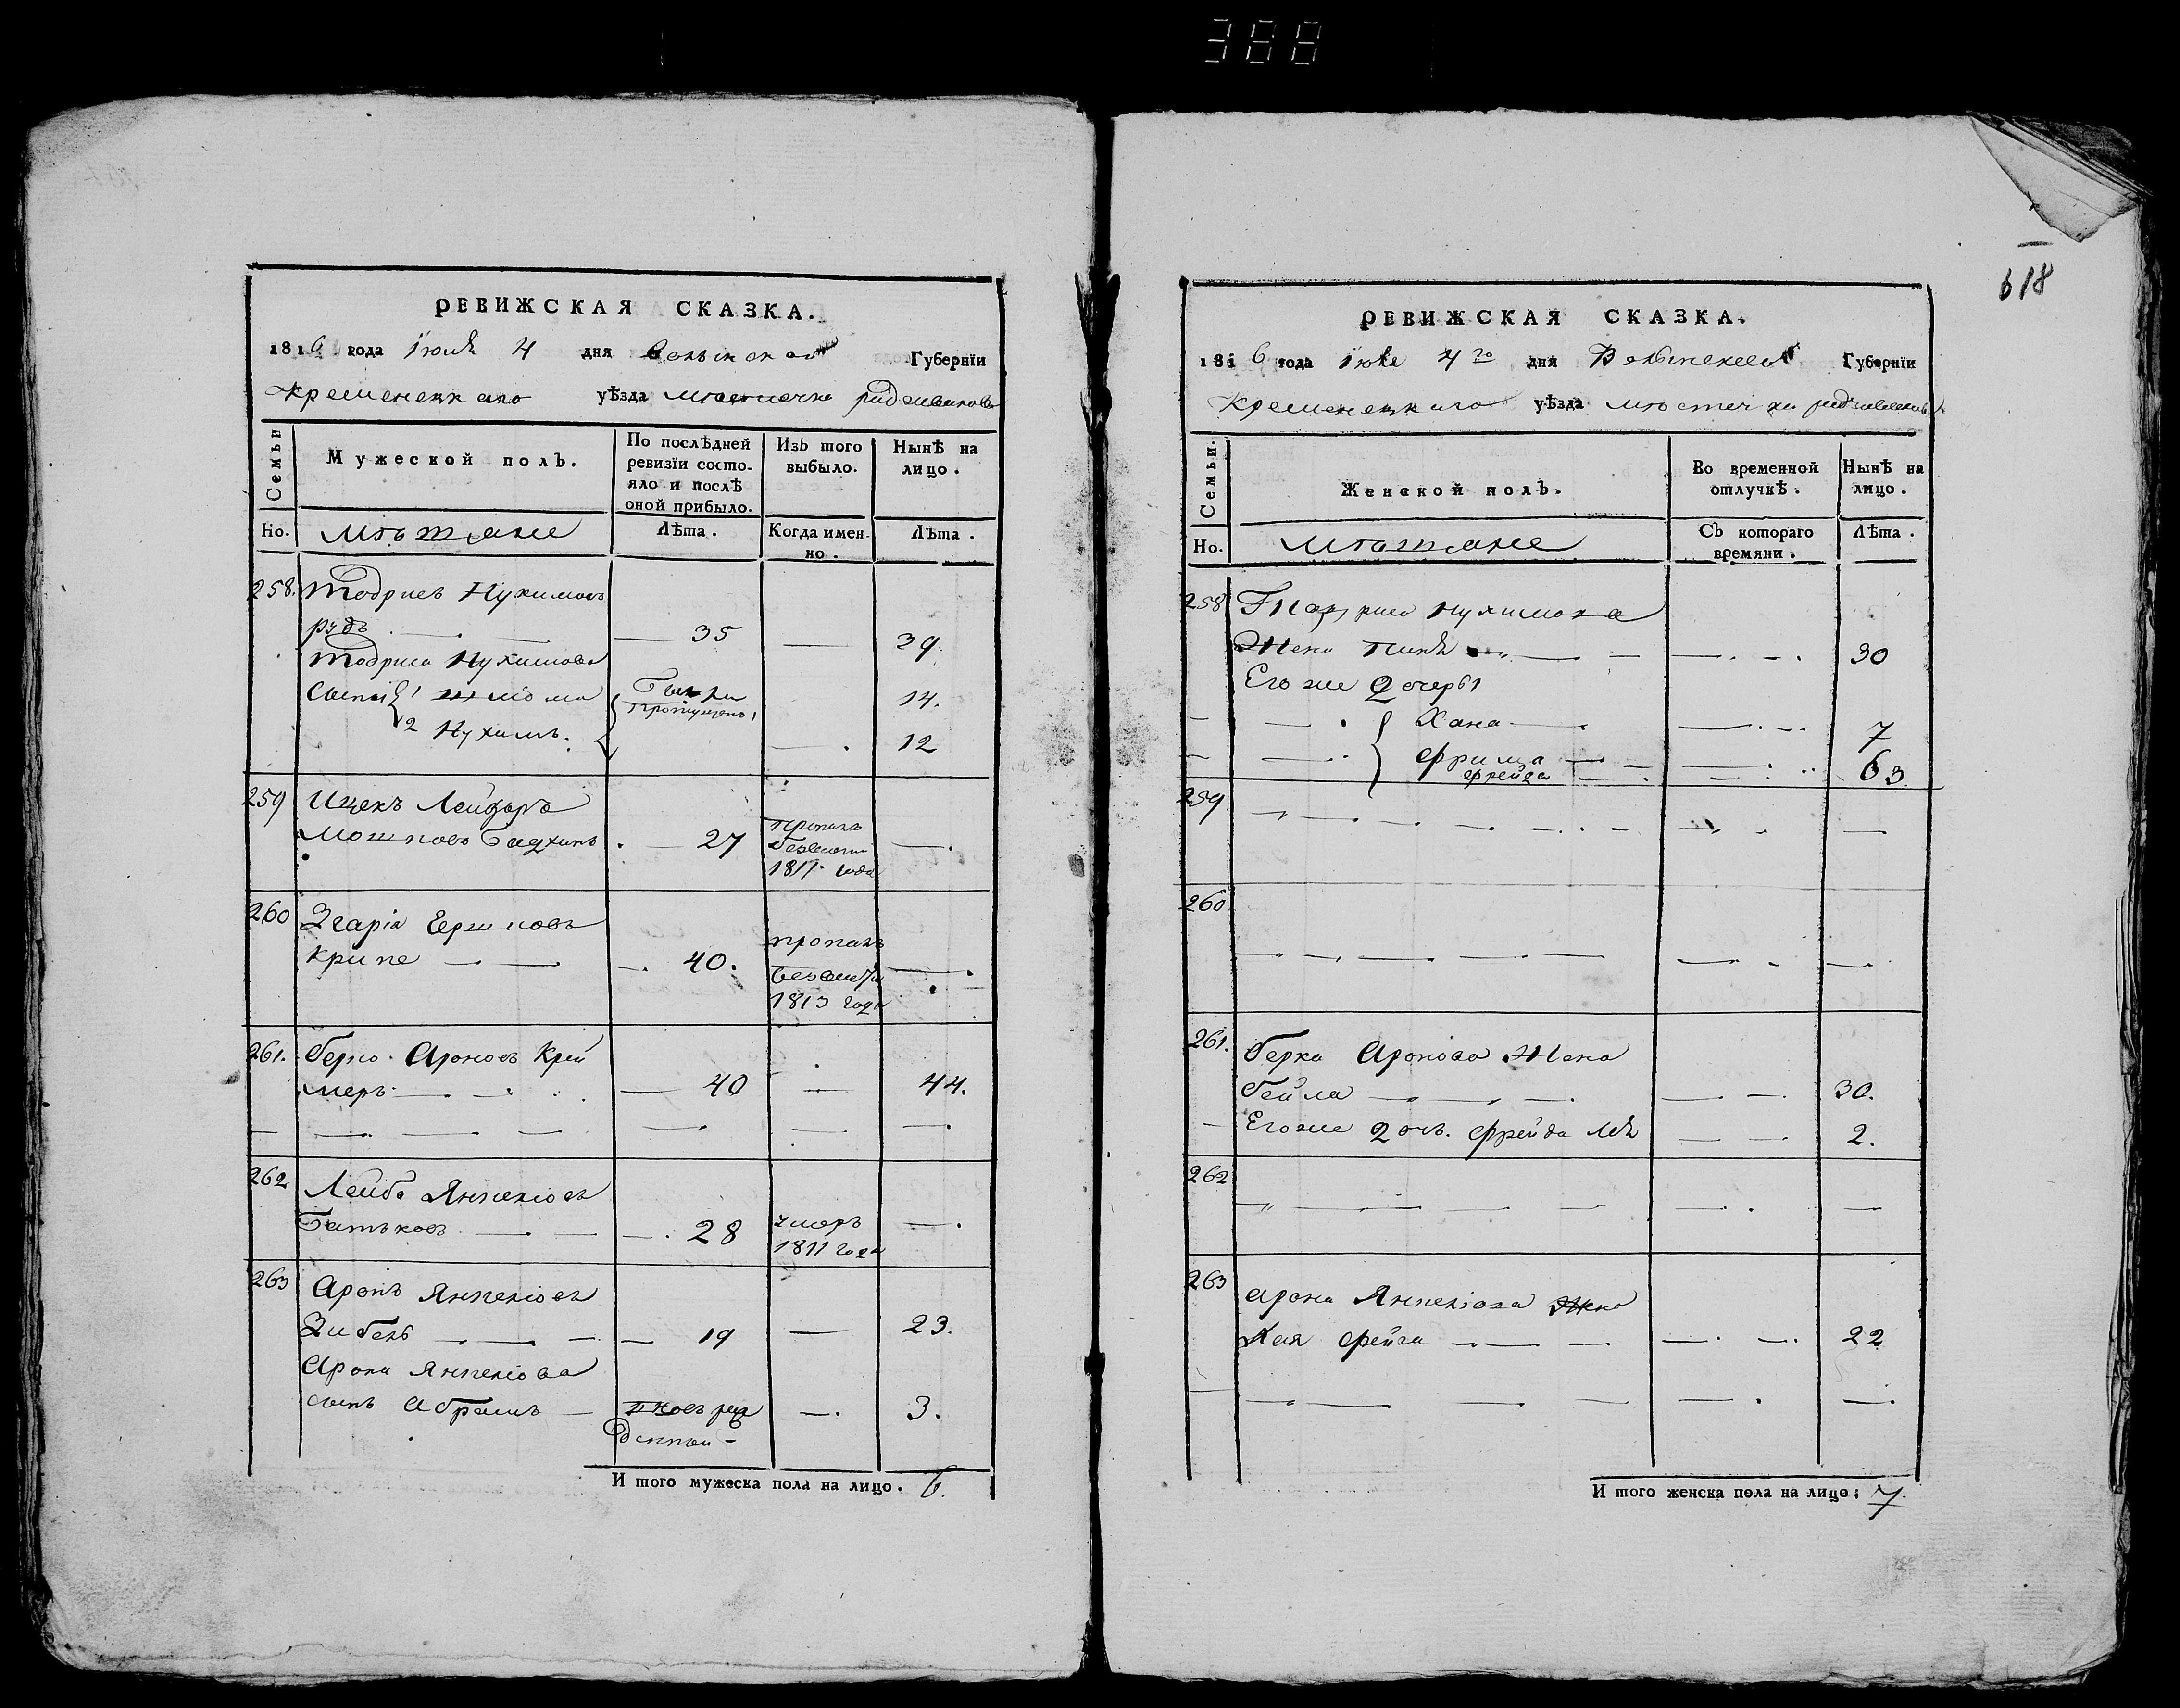 388
РЕВИЖСКАЯ СКАЗКА.
1816 года Іюля 4 дня Волынской Губернїи
Кременецкаго уѣзда мѣстечка радзивилова
Семьи
Мужеской полъ.
По послѣдней ревизїи состояло и послѣ оной прибыло.
Изъ того выбыло.
Нынѣ на лицо.
Но.
мѣщане
Лѣта.
Когда именно.
Лѣта.
258. Тодрисъ Нухимовъ
рудъ — 35 — 39.
Тодриса Нухимова
сыны 1 шліома
Были пропущены
14.
2 Нухимъ. — 12
259 Ицекъ Лейзоръ
Мошковъ — 27
пропалъ безвести 1811 года
260 Згаріа Гершковъ
Крипе — 40.
пропалъ безвести 1813 года
261. Берко Ароновъ Крей
меръ — 40 — 44.
262 Лейба Янкеліовъ
Батьковъ — 28
умеръ 1811 года
263 Аронъ Янкеліовъ
Зибель — 19 — 23.
Арона Янкеліова
сынъ Абрамъ —
— 3.
И того мужеска пола на лицо. 6.
618
РЕВИЖСКАЯ СКАЗКА.
1816 года Іюля 4го дня Волынской Губернїи
Кременецкаго уѣзда мѣстечка радзивилова
Семьи.
Женской полъ.
Во временной отлучкѣ.
Нынѣ на лицо.
Но.
мѣщане
Съ котораго времяни.
Лѣта.
258 Тодриса Нухимова
Жена — 30
Его же дочеры
Хана — 7
Фрима — 6
Фрейда — 3
259
260
261. Берка Аронова Жена
Бейла — 30.
Его же доч. Фрейда — 2.
262
263 Арона Янкеліова Жена
Хая Фейга — 22
И того женска пола на лицо: 7.